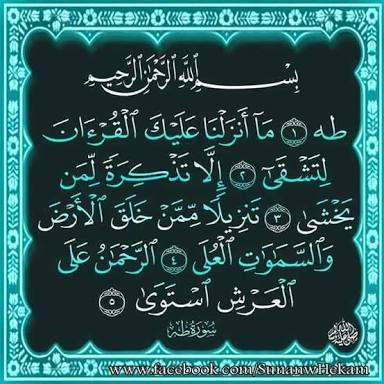 بِسْمِ ٱللَّهِ ٱلرَّحْمَٰنِ ٱلرَّحِيمِ
طه ١ مَآ أَنزَلْنَا عَلَيْكَ ٱلْقُرْءَانَ
لِتَشْقَىٰٓ ٢ إِلَّا تَذْكِرَةً لِّمَن
يَخْشَىٰ ٣ تَنزِيلًا مِّمَّنْ خَلَقَ ٱلْأَرْضَ
وَٱلسَّمَٰوَٰتِ ٱلْعُلَى ٤ ٱلرَّحْمَٰنُ عَلَى
ٱلْعَرْشِ ٱسْتَوَىٰ ٥
سورة طه
www.facebook.com/SunanwHekam